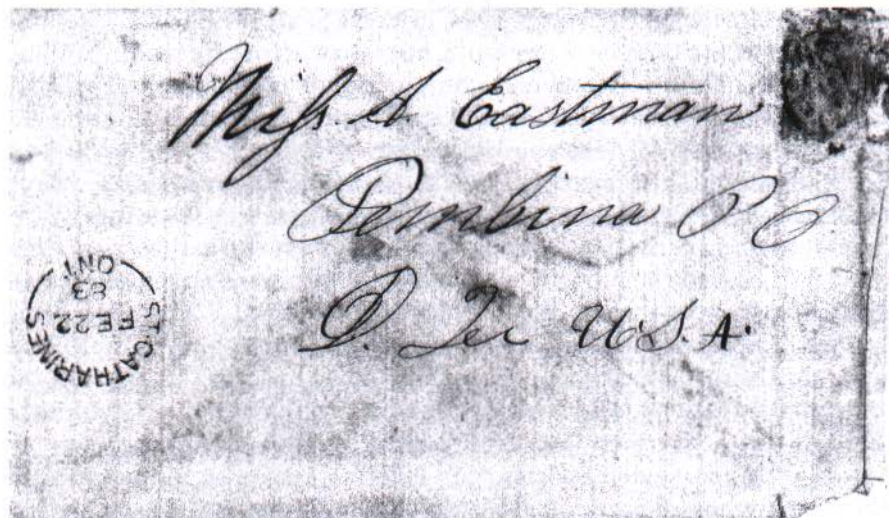 Miss. A Eastman
Pembina P O
D. Ter U.S.A.
ST. CATHARINES
FE 22
83
ONT